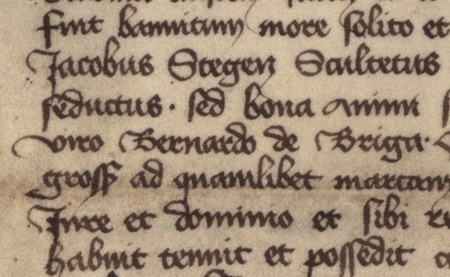 fuit bannitum more solito et
Jacobus Stegen Scultetus
seductus · sed bona animi
viro Bernardo de Briga ·
gross ad quamlibet marcam
Jure et dominio et sibi re
habuit tenuit et possedit